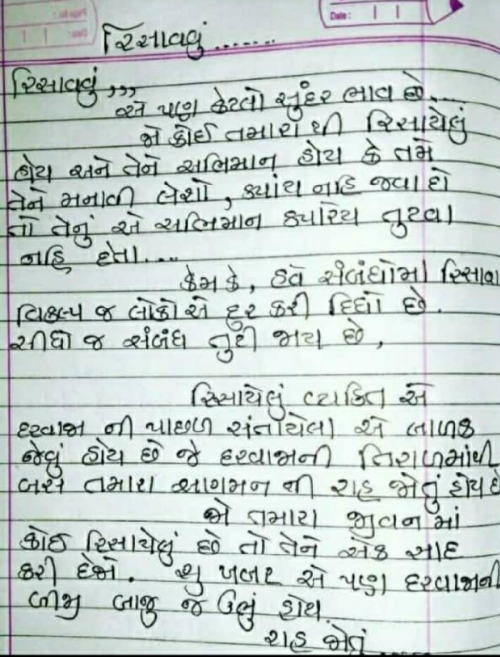 Date:
રિસાવવું .......
રિસાવવું,,,
એ પણ કેટલો સુંદર ભાવ છે...
જો કોઈ તમારા થી રિસાયેલું
હોય અને તેને અભિમાન હોય કે તમે
તેને મનાવી લેશો, ક્યાંય નહિ જવા દો
તો તેનું એ અભિમાન ક્યારેય તુટવા
નહિ દેતા....
કેમ કે, હવે સંબંધોમાં રિસાવા
વિકલ્પ જ લોકો એ દુર કરી દિધો છે.
સીધો જ સંબંધ તુટી જાય છે,
રિસાયેલું વ્યકિત એ
દરવાજા ની પાછળ સંતાયેલા એ બાળક
જેવું હોય છે જે દરવાજાની તિરાળમાંથી
બસ તમારા આગમન ની રાહ જોતું હોય છે
જો તમારા જીવન માં
કોઈ રિસાયેલું છે તો તેને એક સાદ
કરી દેજો. શુ ખબર એ પણ દરવાજાની
બીજી બાજુ જ ઉભું હોય
રાહ જોતું .....